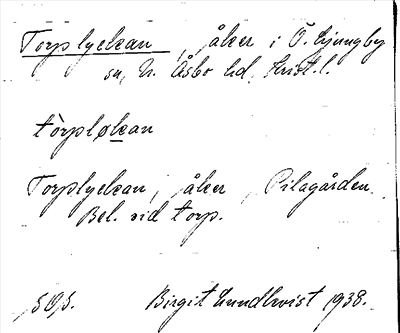 Torplyckan, åker i Ö. Ljungby
sn, N. Åsbo hd, Krist. l.
tòrpløkan
Torplyckan, åker, Pilagården.
Bel. vid torp.
Birgit Lundkvist 1938.